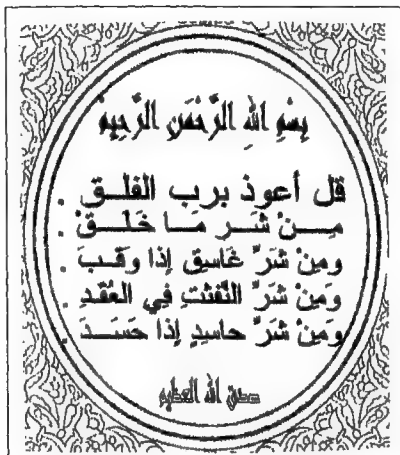 بِسْمِ اللهِ الرَّحْمَنِ الرَّحِيمِ
قل أعوذ برب الفلـــق .
مِـــنْ شَـــر مَـا خَـلَـقْ .
ومِنْ شَرِّ غَاسِقٍ إذا وقَـبَ .
وَمِنْ شَرِّ النَّفثتِ فِي العُقَدِ .
وَمِنْ شَرِّ حاسِدٍ إذَا حَسَـــدَ .
صدق الله العظيم